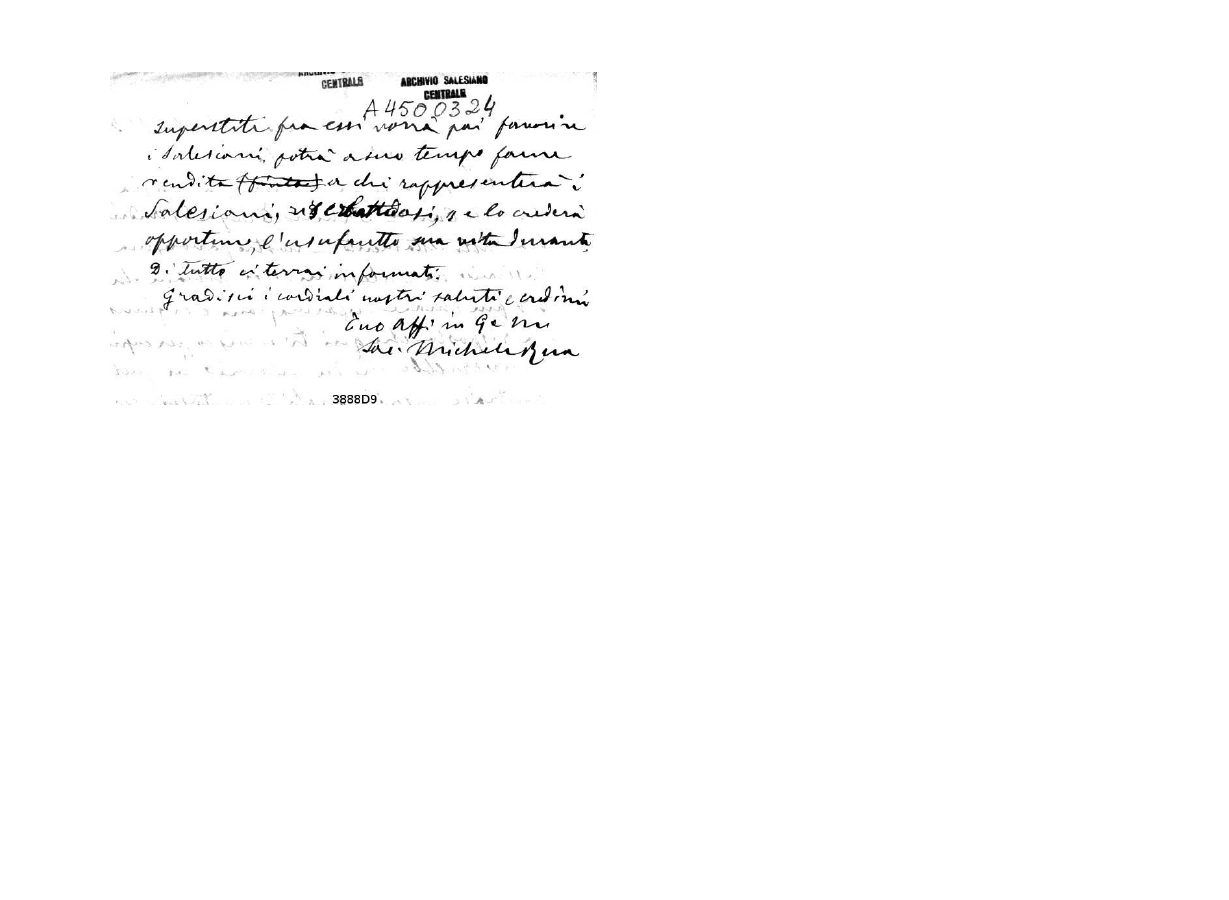 CENTRALE
ARCHIVIO SALESIANO
CENTRALE
A4500324
superstiti fra essi vorrà poi favorire
i Salesiani, potrà a suo tempo farne
vendita (finta) a chi rappresenterà i
Salesiani, riserbattdosi, se lo crederà
opportuno, l'usufrutto sua vita durante
Di tutto ci terrai informati.
Gradisci i cordiali nostri saluti e credimi
Tuo Aff. in G e M
Sac. Michele Rua
3888D9